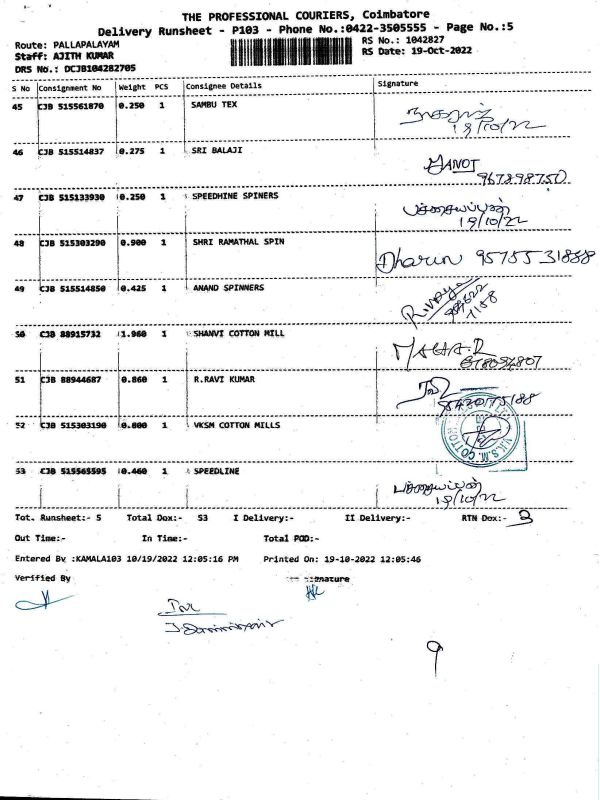 THE PROFESSIONAL COURIERS, Coimbatore
Delivery Runsheet - P103 - Phone No.:0422-3505555 - Page No.:5
Route: PALLAPALAYAM
RS No.: 1042827
Staff: AJITH KUMAR
RS Date: 19-Oct-2022
DRS No.: DCJB104282705
S No Consignment No Weight PCS Consignee Details Signature
45 CJB 515561870 0.250 1 SAMBU TEX
19/10/22
46 CJB 515514837 0.275 1 SRI BALAJI
MANOJ
967898750
47 CJB 515133930 0.250 1 SPEEDHINE SPINERS
பச்சையப்பன்
19/10/22
48 CJB 515303290 0.900 1 SHRI RAMATHAL SPIN
Dharun 9575531888
49 CJB 515514850 0.425 1 ANAND SPINNERS
50 CJB 88915732 1.960 1 SHANVI COTTON MILL
51 CJB 88944687 0.860 1 R.RAVI KUMAR
52 CJB 515303190 0.800 1 VKSM COTTON MILLS
V.K.S.M. COTTON
53 CJB 515565595 0.460 1 SPEEDLINE
பச்சையப்பன்
19/10/22
Tot. Runsheet:- 5 Total Dox:- 53 I Delivery:- II Delivery:- RTN Dox:- 3
Out Time:- In Time:- Total POD:-
Entered By :KAMALA103 10/19/2022 12:05:16 PM Printed On: 19-10-2022 12:05:46
Verified By Signature
9